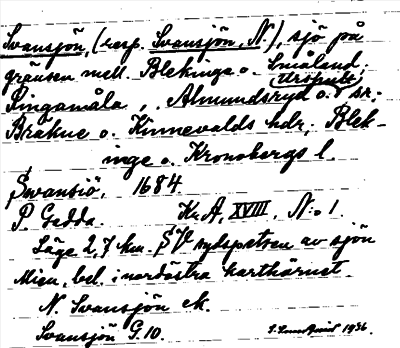 Svansjön, (resp. Svansjön, N.), sjö på
gränsen mell. Blekinge o. Småland.
Urshult
Ringamåla, Almundsryd o. sr;
Bräkne o. Kinnevalds hdr; Blek-
inge o. Kronobergs l.
Swansiö, 1684
P. Gedda. Kr. A, XVIII, N:o 1.
Läge 2,7 km. SV sydspetsen av sjön
Mien, bel. i nordöstra karthörnet.
N. Svansjön ek.
Svansjön G. 10.
1936.